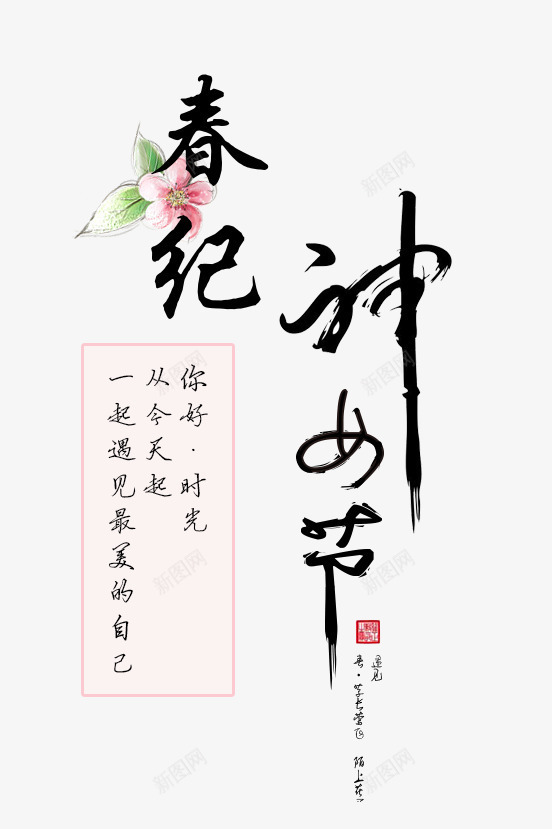 神女节
春纪
你好·时光
从今天起
一起遇见最美的自己
遇见
陌上花
新图网
新图网
新图网
新图网
新图网
新图网